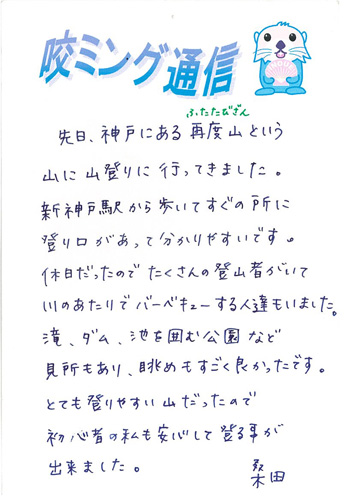 咬ミング通信
ふたたびさん
先日、神戸にある再度山という
山に山登りに行ってきました。
新神戸駅から歩いてすぐの所に
登り口があって分かりやすいです。
休日だったのでたくさんの登山者がいて
川のあたりでバーベキューする人達もいました。
滝、ダム、池を囲む公園など
見所もあり、眺めもすごく良かったです。
とても登りやすい山だったので
初心者の私も安心して登る事が
出来ました。
桑田